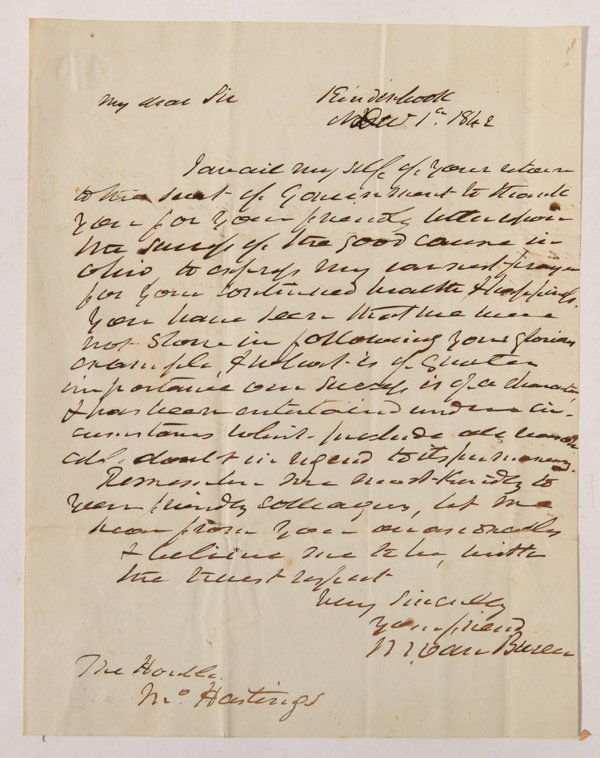 My dear Sir Kinderhook
Decr 1st 1842
I avail myself of your return
to the seat of Government to thank
you for your friendly letter upon
the success of the good cause in
Ohio to express my earnest prayer
for your continued health & happiness.
You have seen that we were
not slow in following your glorious
example, & what is of greater
importance our success is of a character
& has been entertained under cir-
cumstances which preclude all reason
able doubt in regard to its permanency.
Remember me most kindly to
your friendly colleagues, let me
hear from you occasionally
& believe me to be, with
the truest respect
Very Sincerely
Your friend
M Van Buren
The Honble.
Mr Hastings